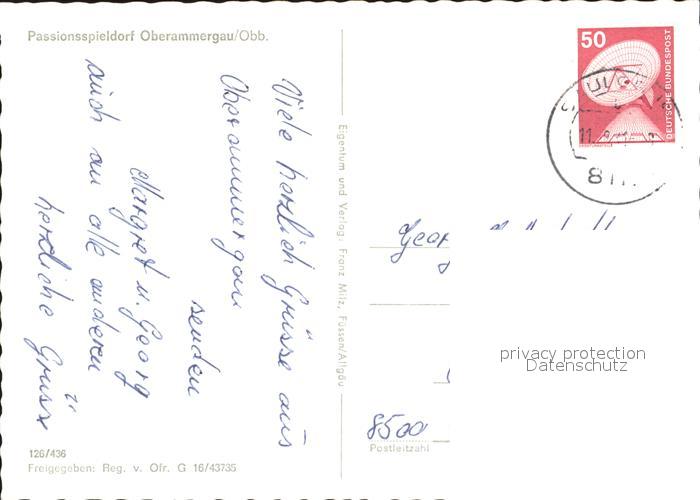 Passionsspieldorf Oberammergau/Obb.
Viele herzlich Grüsse aus
Oberammergau
senden
Margret u. Georg
auch an alle anderen
herzliche Grüsse
126/436
Freigegeben: Reg. v. Ofr. G 16/43735
Eigentum und Verlag: Franz Milz, Füssen/Allgäu
50
DEUTSCHE BUNDESPOST
Georg
privacy protection
Datenschutz
8500
Postleitzahl